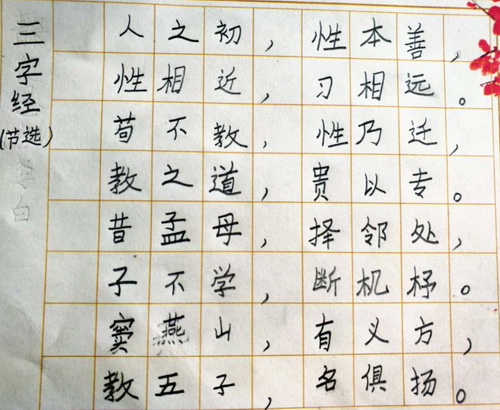 三字经
(节选)
人之初，性本善，
性相近，习相远。
荀不教，性乃迁，
教之道，贵以专。
昔孟母，择邻处，
子不学，断机杼。
窦燕山，有义方，
教五子，名俱扬。